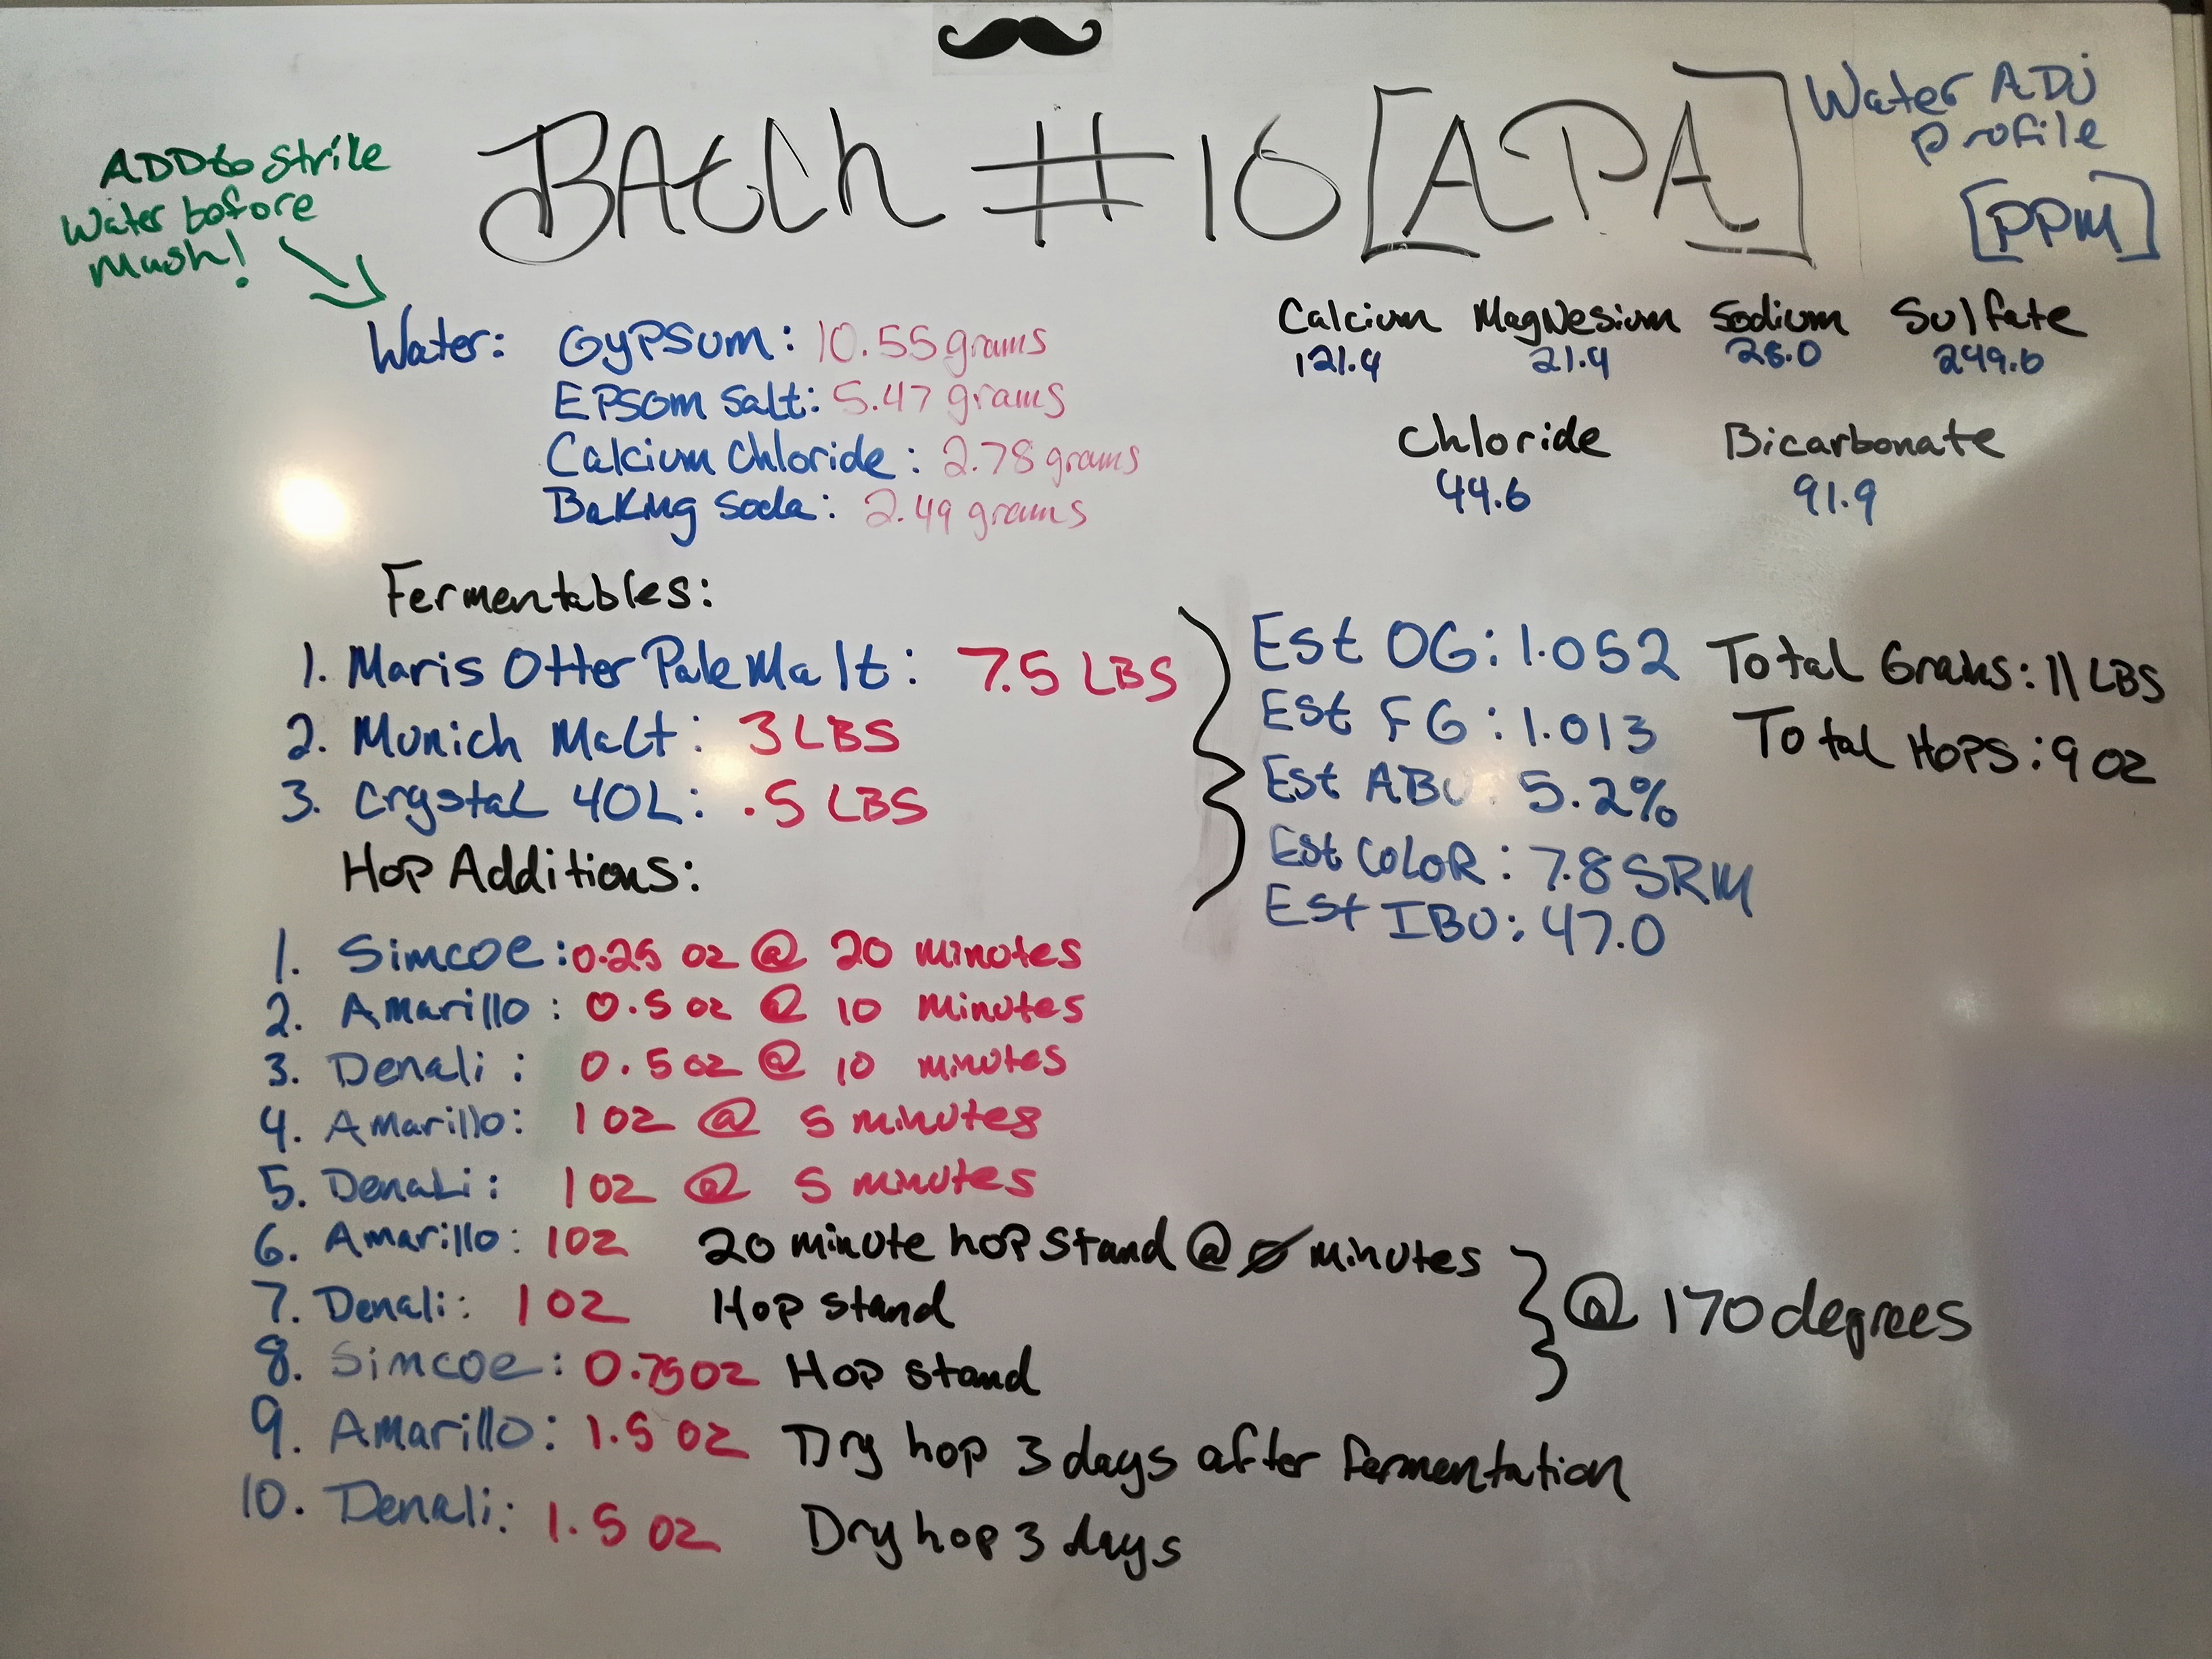 BAtCh #16 [APA]
Water ADj
profile
[PPM]
ADD to Strike
Water before
Mash!
Water: GyPSum: 10.55 grams
EPSom Salt: 5.47 grams
Calcium Chloride: 2.78 grams
Baking Soda: 2.49 grams
Calcium Magnesium Sodium Sulfate
121.4 21.4 28.0 249.6
Chloride Bicarbonate
44.6 91.9
Fermentables:
1. Maris Otter Pale Malt: 7.5 LBS
2. Munich Malt: 3 LBS
3. Crystal 40L: .5 LBS
Est OG: 1.052
Est FG: 1.013
Est ABV: 5.2%
Est Color: 7.8 SRM
Est IBU: 47.0
Total Grains: 11 LBS
Total Hops: 9 oz
Hop Additions:
1. Simcoe: 0.25 oz @ 20 minutes
2. Amarillo: 0.5 oz @ 10 minutes
3. Denali: 0.5 oz @ 10 minutes
4. Amarillo: 1 oz @ 5 minutes
5. Denali: 1 oz @ 5 minutes
6. Amarillo: 1 oz 20 minute hop stand @ 0 minutes
7. Denali: 1 oz Hop stand
8. Simcoe: 0.75 oz Hop stand
@ 170 degrees
9. Amarillo: 1.5 oz Dry hop 3 days after fermentation
10. Denali: 1.5 oz Dry hop 3 days